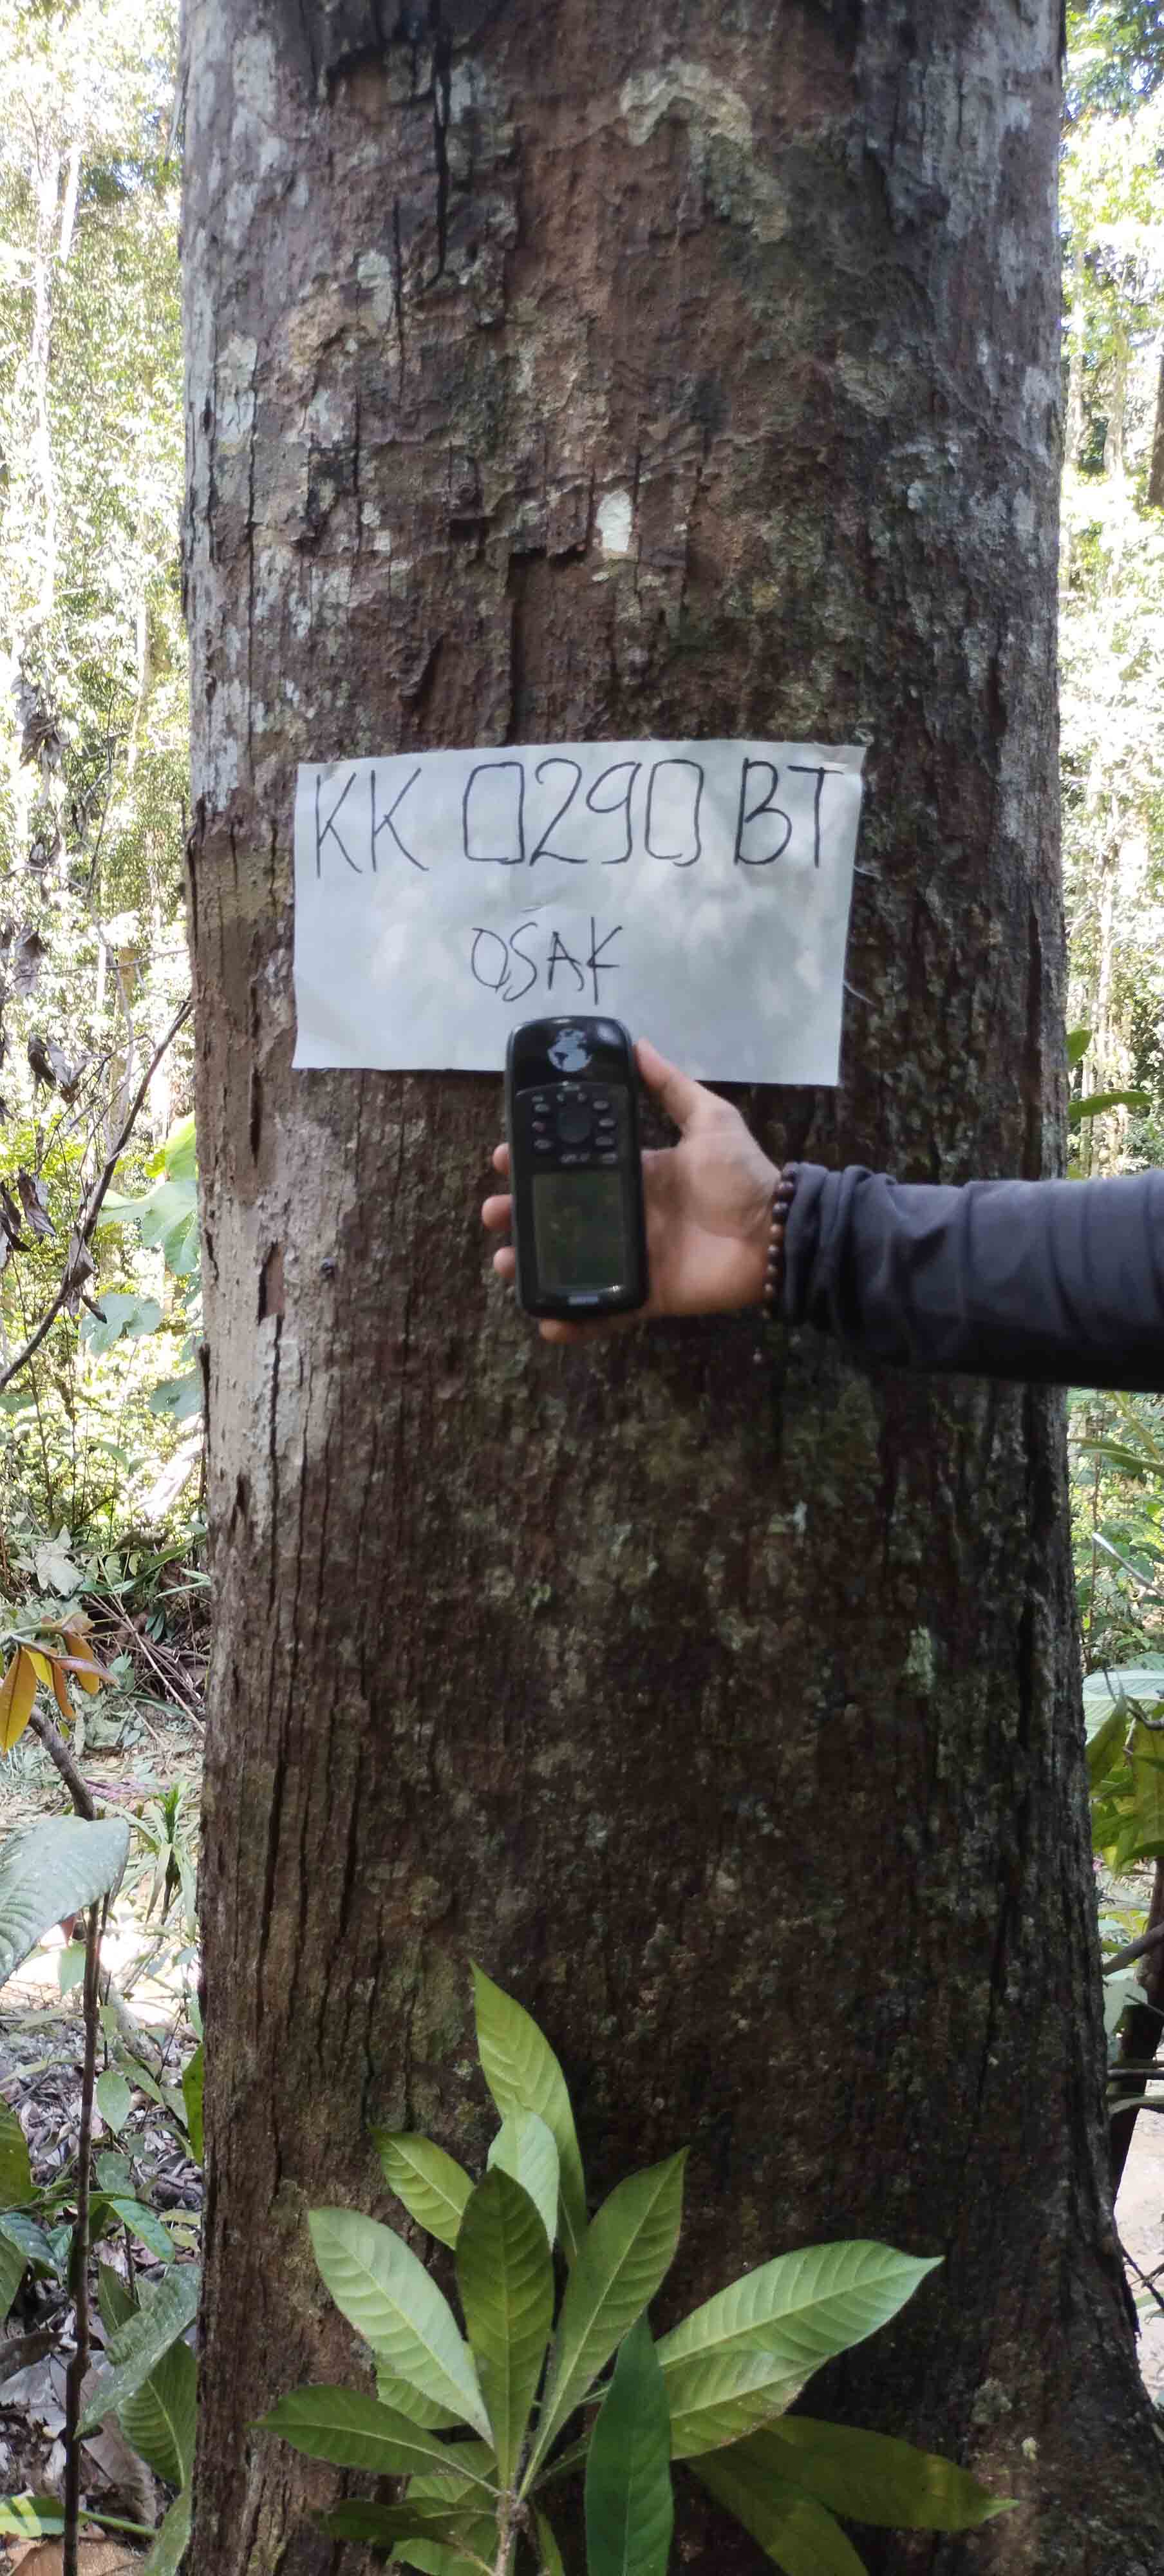 KK 0290 BT
OSAK